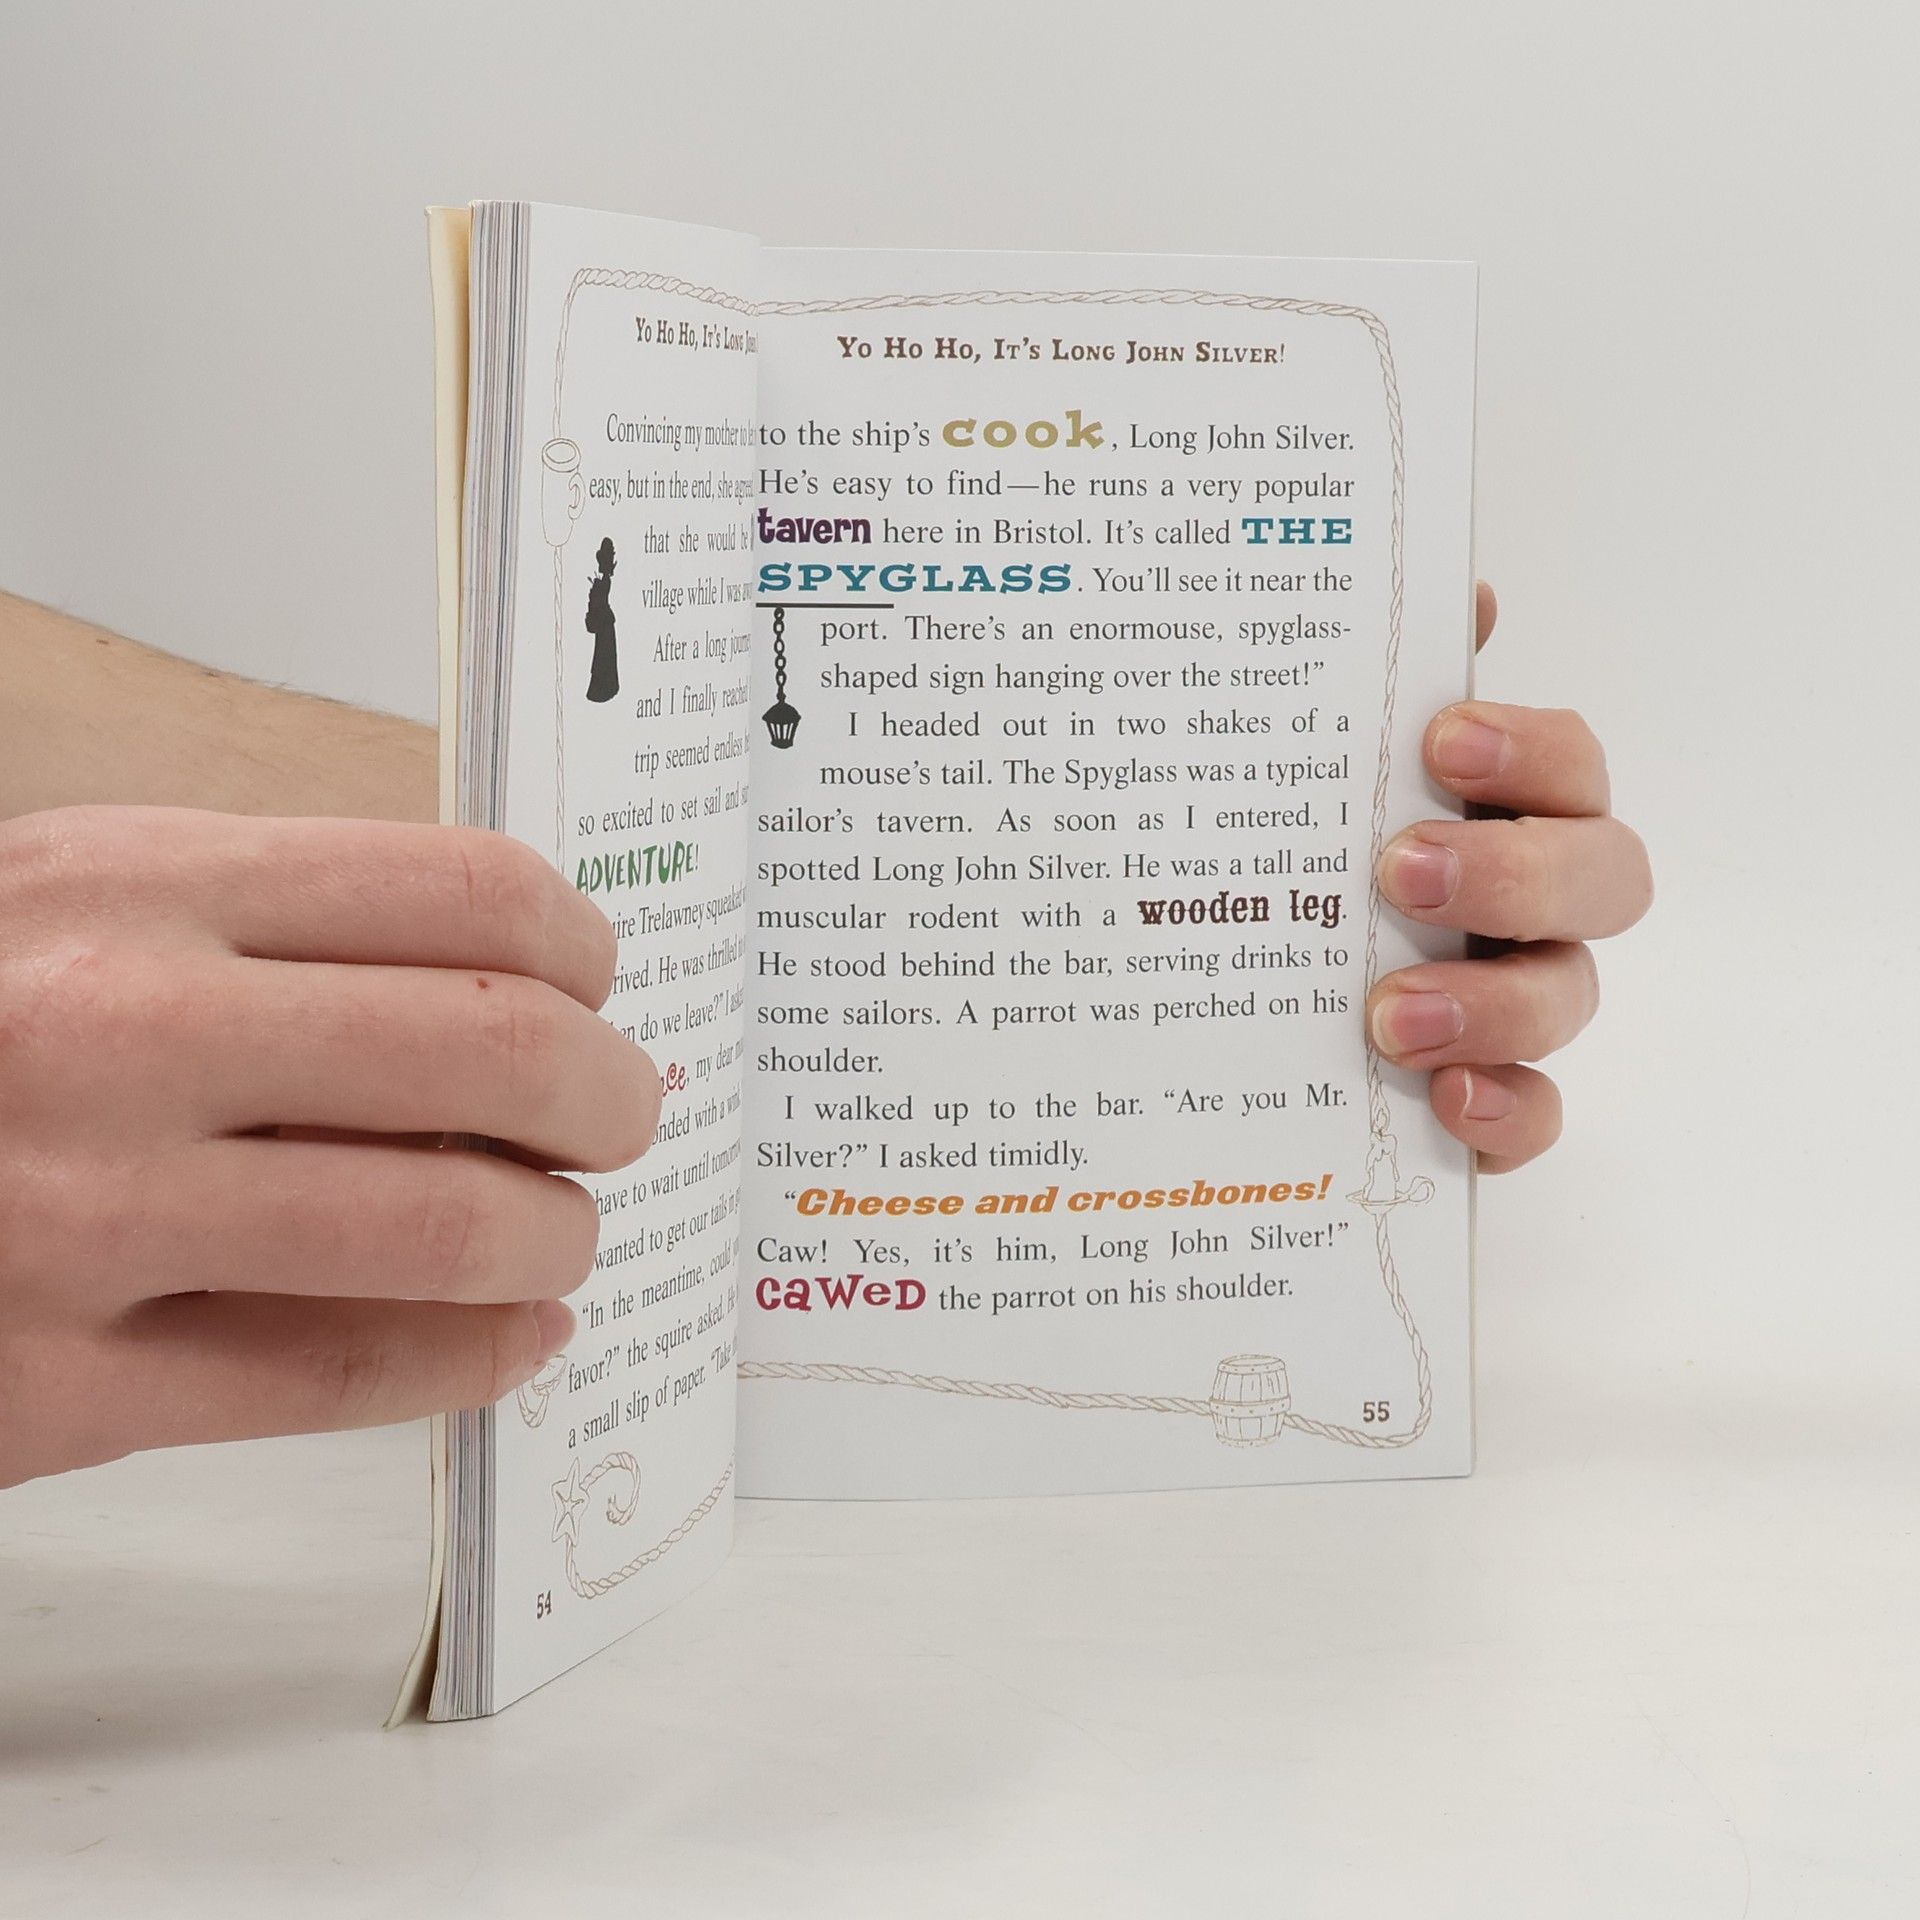 Yo Ho Ho, It's Long
Convincing my mother to
easy, but in the end, she agreed
that she would be
village while I was
After a long
and I finally reached
trip seemed endless
so excited to set sail and
ADVENTURE!
Trelawney squeaked
He was thrilled
do we leave?" I
, my dear
with a
have to wait until
wanted to get our tails in
"In the meantime, could
favor?" the squire asked. He
a small slip of paper. "Take
54
Yo Ho Ho, It's Long John Silver!
to the ship's cook, Long John Silver.
He's easy to find—he runs a very popular
tavern here in Bristol. It's called THE
SPYGLASS. You'll see it near the
port. There's an enormouse, spyglass-
shaped sign hanging over the street!"
I headed out in two shakes of a
mouse's tail. The Spyglass was a typical
sailor's tavern. As soon as I entered, I
spotted Long John Silver. He was a tall and
muscular rodent with a wooden leg.
He stood behind the bar, serving drinks to
some sailors. A parrot was perched on his
shoulder.
I walked up to the bar. "Are you Mr.
Silver?" I asked timidly.
"Cheese and crossbones!
Caw! Yes, it's him, Long John Silver!"
CaWeD the parrot on his shoulder.
55